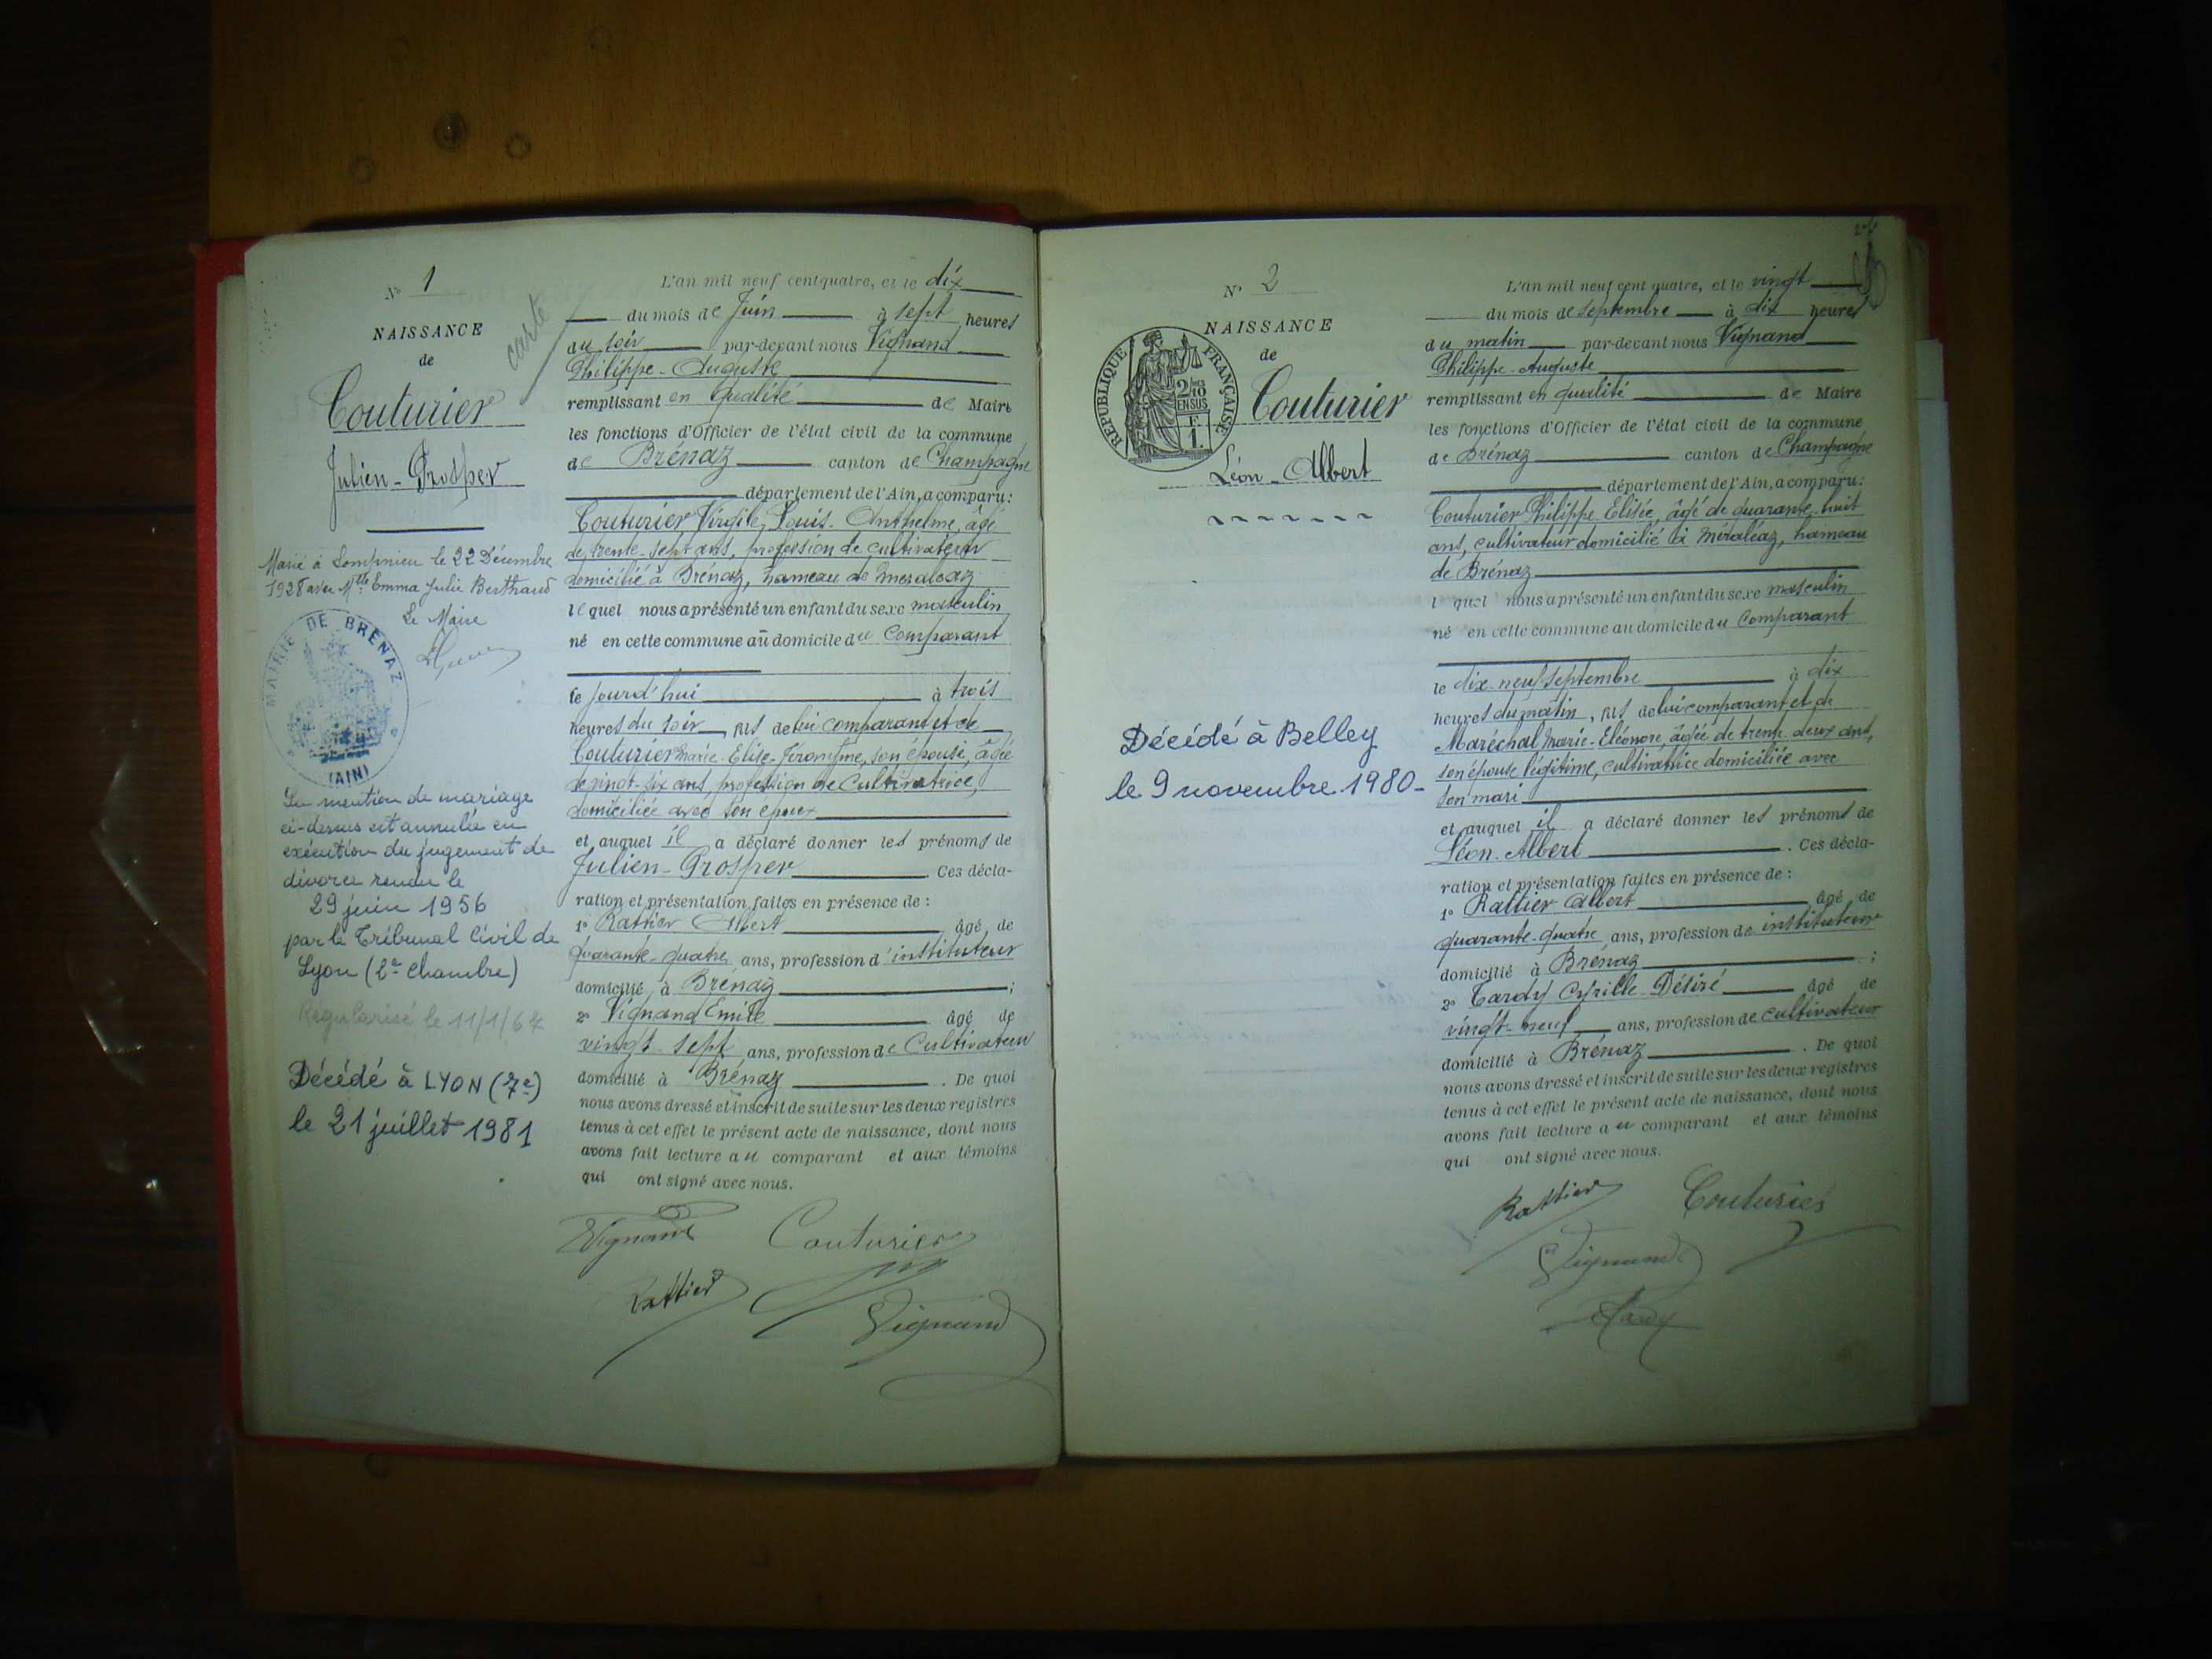 N° 1
NAISSANCE
de
Couturier
Julien-Prosper
carte
Marié à Songieu le 22 Décembre
1928 avec Mlle Emma Julie Berthaud
Le Maire
MAIRIE DE BRENAZ
(AIN)
La mention de mariage
ci-dessus est annulée en
exécution du jugement de
divorce rendu le
29 juin 1956
par le Tribunal Civil de
Lyon (2e chambre)
Régularisé le 11/1/62
Décédé à LYON (7e)
le 21 juillet 1981
L'an mil neuf cent quatre, et le dix
du mois de Juin à sept heures
du soir par-devant nous Vignand
Philippe-Auguste
remplissant en qualité de Maire
les fonctions d'Officier de l'état civil de la commune
de Brénaz canton de Champagne
département de l'Ain, a comparu:
Couturier Virgile, Louis-Anthelme, âgé
de trente-sept ans, profession de cultivateur
domicilié à Brénaz, hameau de Méraléaz
lequel nous a présenté un enfant du sexe masculin
né en cette commune au domicile du Comparant
le jourd'hui à trois
heures du soir, fils de lui comparant et de
Couturier Marie-Elise-Féronyme, son épouse, âgée
de vingt-six ans, profession de Cultivatrice,
domiciliée avec son époux
et auquel il a déclaré donner les prénoms de
Julien-Prosper Ces décla-
ration et présentation faites en présence de :
1° Rattier Albert âgé de
quarante-quatre ans, profession d'instituteur
domicilié à Brénaz ;
2° Vignand Emile âgé de
vingt-sept ans, profession de Cultivateur
domicilié à Brénaz . De quoi
nous avons dressé et inscrit de suite sur les deux registres
tenus à cet effet le présent acte de naissance, dont nous
avons fait lecture au comparant et aux témoins
qui ont signé avec nous.
Vignand Couturier
Rattier
Vignand
N° 2
NAISSANCE
de
REPUBLIQUE FRANÇAISE
2/10
EN SUS
F.
1.
Couturier
Léon-Albert
Décédé à Belley
le 9 novembre 1980-
L'an mil neuf cent quatre, et le vingt
du mois de septembre à dix heures
du matin par-devant nous Vignand
Philippe-Auguste
remplissant en qualité de Maire
les fonctions d'Officier de l'état civil de la commune
de Brénaz canton de Champagne
département de l'Ain, a comparu:
Couturier Philippe Elisée, âgé de quarante-huit
ans, cultivateur domicilié à Méraléaz, hameau
de Brénaz
l quel nous a présenté un enfant du sexe masculin
né en cette commune au domicile du Comparant
le dix-neuf septembre à dix
heures du matin, fils de lui comparant et de
Maréchal Marie-Eléonore, âgée de trente-deux ans,
son épouse légitime, cultivatrice domiciliée avec
son mari
et auquel il a déclaré donner les prénoms de
Léon-Albert . Ces décla-
ration et présentation faites en présence de :
1° Rattier Albert âgé de
quarante-quatre ans, profession de instituteur
domicilié à Brénaz ;
2° Tardy Cyrille Désiré âgé de
vingt-neuf ans, profession de cultivateur
domicilié à Brénaz . De quoi
nous avons dressé et inscrit de suite sur les deux registres
tenus à cet effet le présent acte de naissance, dont nous
avons fait lecture au comparant et aux témoins
qui ont signé avec nous.
Rattier Couturier
Vignand
Tardy